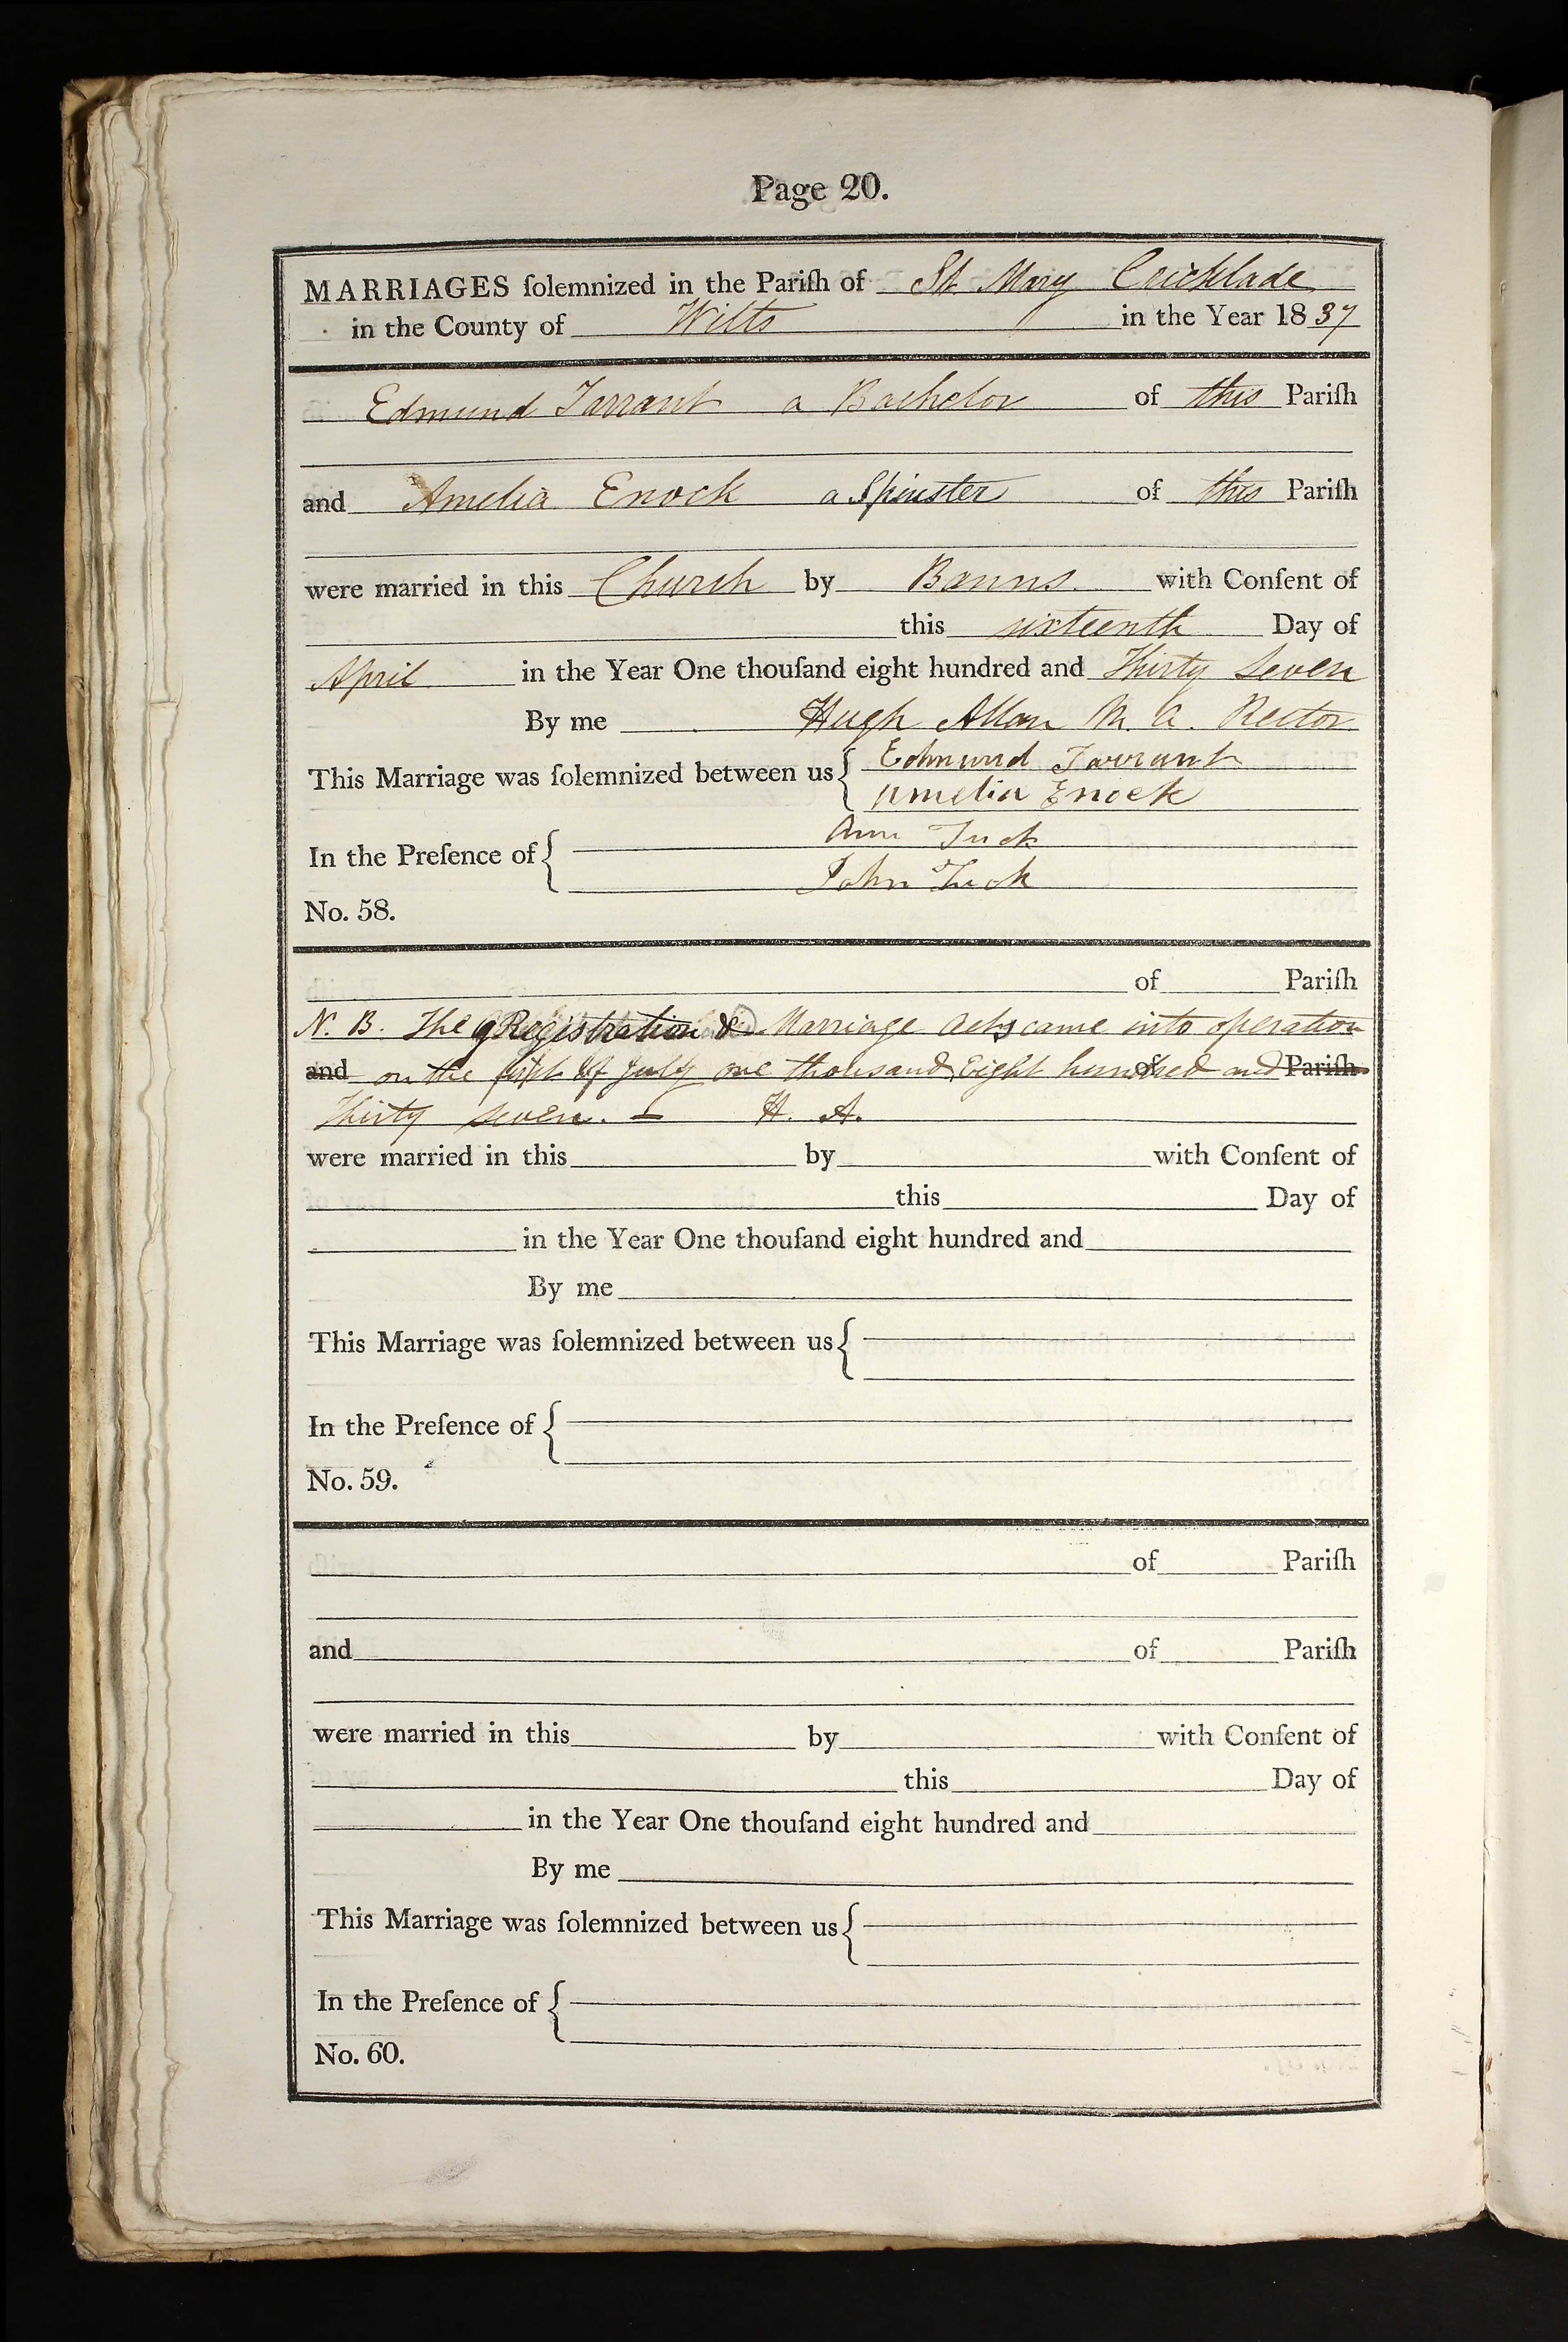 Page 20.
MARRIAGES ſolemnized in the Pariſh of St. Mary Cricklade
in the County of Wilts in the Year 1837
Edmund Tarrant a Bachelor of this Pariſh
and Amelia Enock a Spinster of this Pariſh
were married in this Church by Banns with Conſent of
this sixteenth Day of
April in the Year One thouſand eight hundred and Thirty Seven
By me Hugh Allan M. A. Rector
This Marriage was ſolemnized between us { Edmund Tarrant
Amelia Enock
In the Preſence of { Ann Tuck
John Tuck
No. 58.
of Pariſh
N. B. The Registration & Marriage Acts came into operation
and on the first of July one thousand Eight hundred and of Pariſh
Thirty seven. H. A.
were married in this by with Conſent of
this Day of
in the Year One thouſand eight hundred and
By me
This Marriage was ſolemnized between us {
In the Preſence of {
No. 59.
of Pariſh
and of Pariſh
were married in this by with Conſent of
this Day of
in the Year One thouſand eight hundred and
By me
This Marriage was ſolemnized between us {
In the Preſence of {
No. 60.